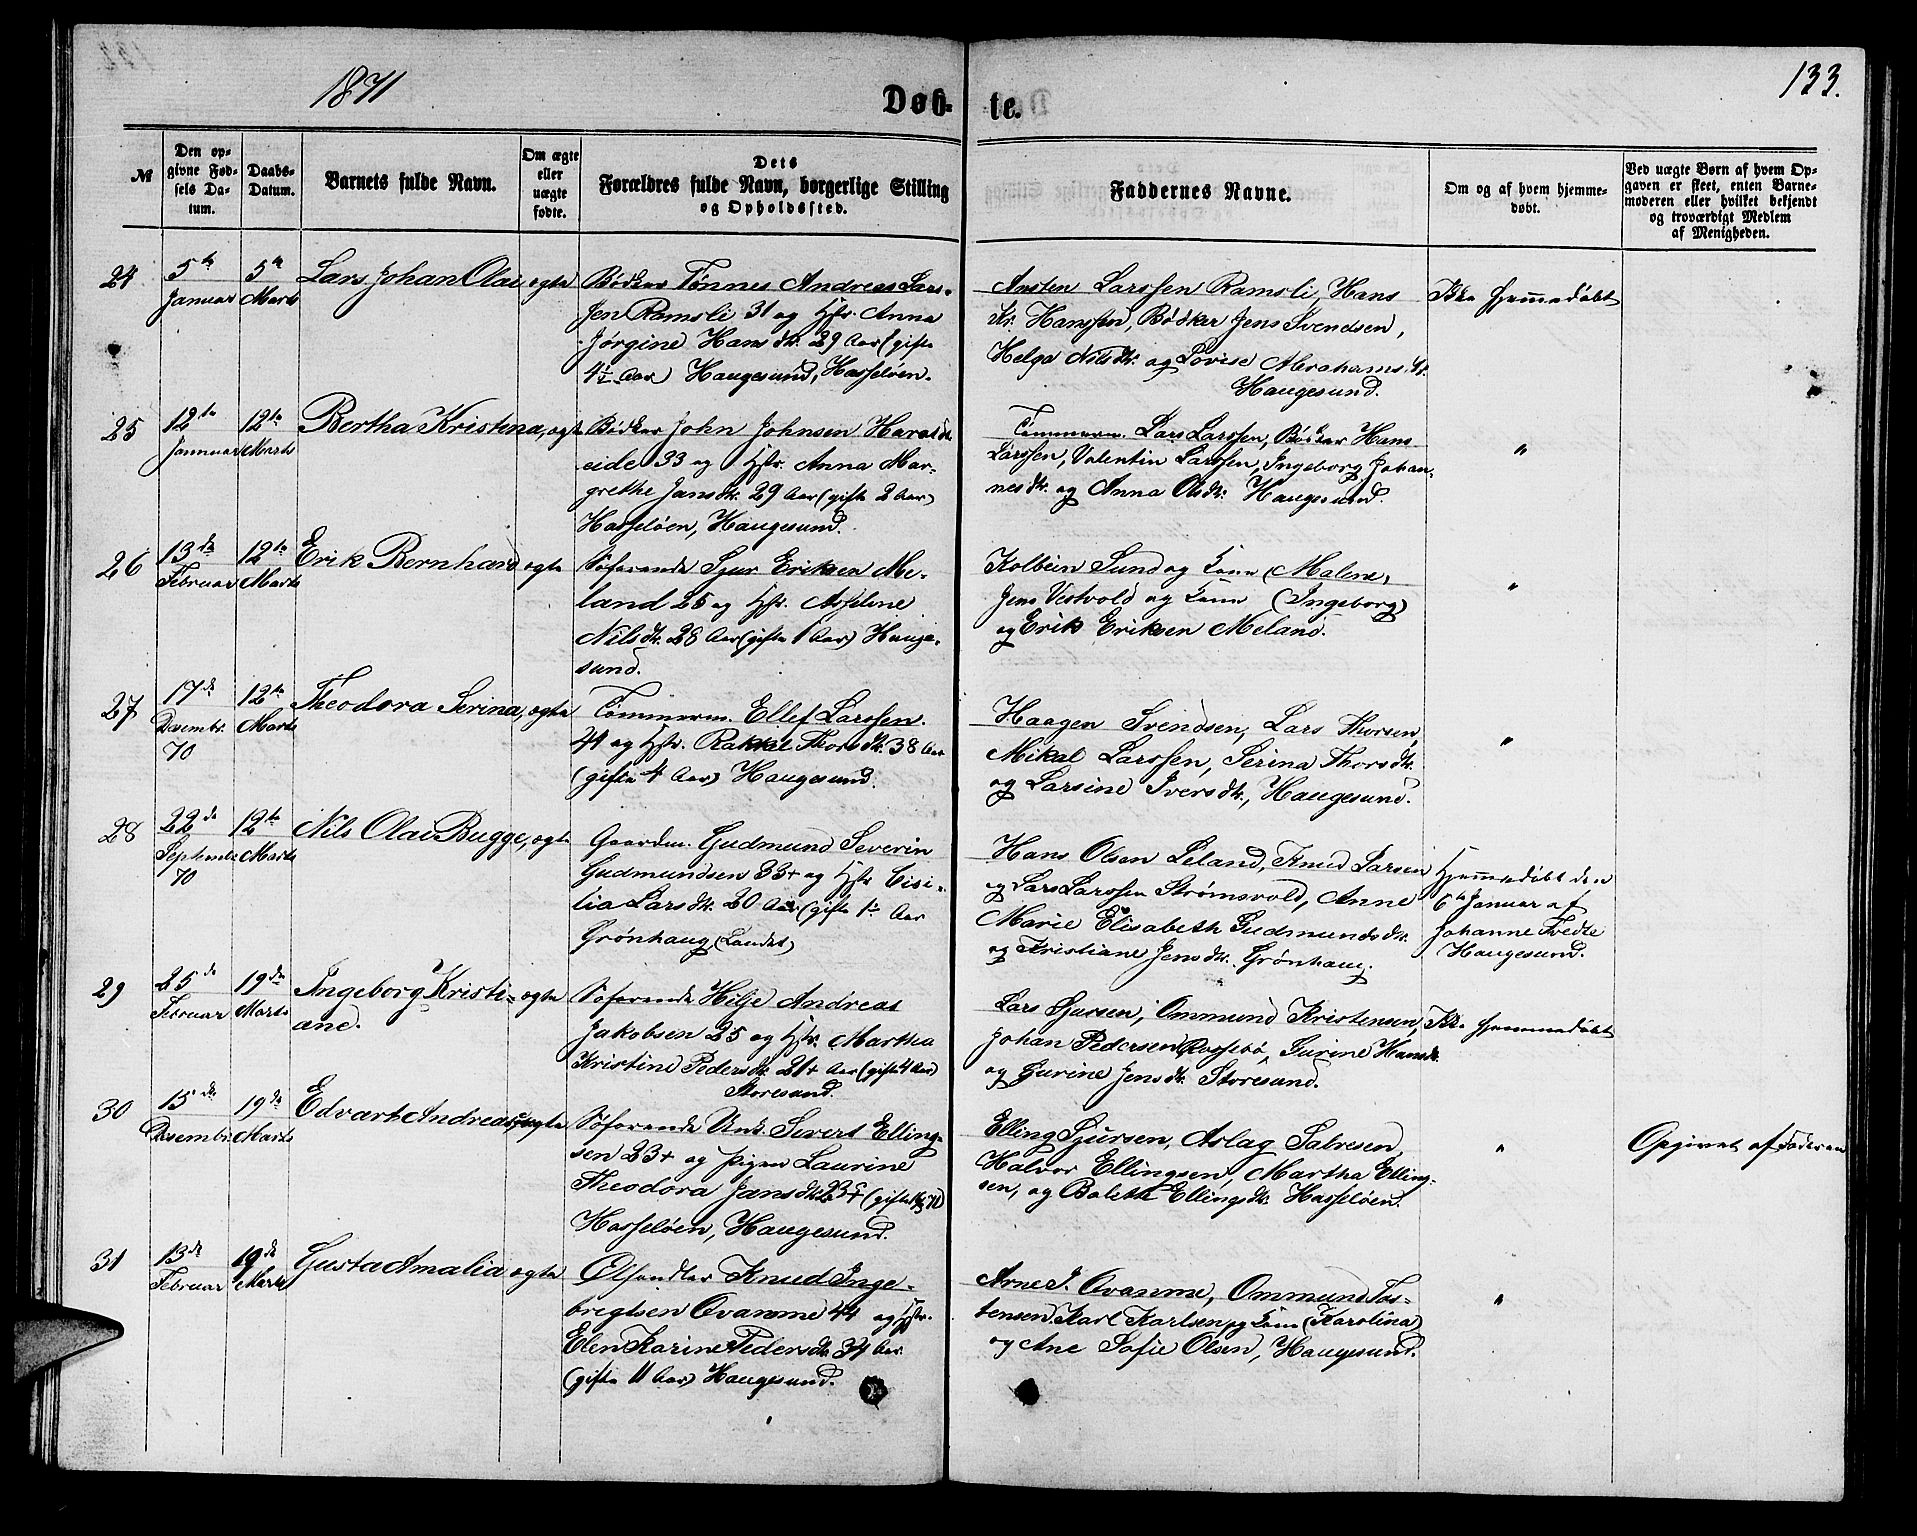 1871
Døb-
te.
133.
№
Den op-
givne Fød-
sels Da-
tum.
Daabs-
Datum.
Barnets fulde Navn.
Om ægte
eller
uægte
fødte.
Dets
Forældres fulde Navn, borgerlige Stilling
og Opholdssted.
Faddernes Navne.
Om og af hvem hjemme-
døbt.
Ved uægte Børn af hvem Op-
gaven er skeet, enten Barne-
moderen eller hvilket bekjendt
og troværdigt Medlem
af Menigheden.
24
5te
Januar
5te
Marts
Lars Johan Olai
ægte
Bødker Tønnes Andreas Lars-
sen Ramsli 31 og Hstr. Anna
Jørgine Hansdtr. 29 Aar (gifte
4½ Aar) Haugesund, Hasseløen.
Ansten Larssen Ramsli, Hans
Kr. Hanssen, Bødker Jens Svendsen,
Helga Nilsdtr. og Lovise Abrahamsdtr.
Haugesund.
Ikke hjemmedøbt
25
12te
Januar
12te
Marts
Bertha Kristina,
ægte
Bødker John Johnsen Haralds-
eide 33 og Hstr. Anna Mar-
grethe Jansdtr. 29 Aar (gifte 2 Aar)
Hasseløen, Haugesund.
Tømmerm. Lars Larssen, Bødker Hans
Larssen, Valentin Larssen, Ingeborg Johan-
nesdtr. og Anna Olsdtr. Haugesund.
"
26
13de
Februar
12te
Marts
Erik Bernhard
ægte
Søfarende Sjur Eriksen Me-
land 25 og Hstr. Asseline
Nilsdtr. 28 Aar (gifte 1 Aar) Hauge-
sund.
Kolbein Sund og Kone (Malene,
Jens Vestvold og Kone (Ingeborg)
og Erik Eriksen Meland.
"
27
17de
Decembr.
70
12te
Marts
Theodora Serina,
ægte
Tømmerm. Ellef Larssen
44 og Hstr. Rakkel Thorsdtr. 38 Aar
(gifte 4 Aar) Haugesund.
Haagen Svendsen, Lars Thorsen,
Mikal Larssen, Serina Thorsdtr.
og Larsine Iversdtr., Haugesund.
"
28
22de
Septembr
70
12te
Marts
Nils Olai Bugge,
ægte
Gaardm. Gudmund Severin
Gudmundsen 33+ og Hstr Cisi-
lia Larsdtr. 20 Aar (gifte 1½ Aar
Grønhaug (Landet)
Hans Olsen Leland, Knud Larsen
og Lars Larssen Strømsvold, Anne
Marie Elisabeth Gudmundsdtr.
og Kristiane Jensdtr. Grønhaug.
Hjemmedøbt den
6te Januar af
Johanne Tvedte
Haugesund.
29
25de
Februar
19de
Marts
Ingeborg Kristi-
ane.
ægte
Søfarende Hilje Andreas
Jakobsen 25 og Hstr. Martha
Kristine Pedersdtr. 21+ Aar (gifte 4 Aar)
Storesund.
Lars Sjursen, Ommund Kristensen,
Johan Pedersen Rossebø, Gurine Hansdtr.
og Gurine Jensdtr. Storesund.
Ikke hjemmedøbt
30
15de
Decembr.
19de
Marts
Edvart Andreas
ægte
Søfarende Unk. Sivert Elling-
sen 23+ og Pigen Laurine
Theodora Jansdtr. 23+ (gifte
Hasseløen, Haugesund.
Elling Sjursen, Aslag Salvesen,
Halvor Ellingsen, Martha Elling-
sen, og Bolette Ellingsdtr. Hasseløen.
"
Opgivet af Faderen
31
13de
Februar
19de
Marts
Gusta Amalia
ægte
Ølhandler Knud Inge-
bregtsen Qvamme 44 og Hstr.
Elen Karine Pedersdtr. 34 Aar
(gifte 11 Aar) Haugesund.
Arne J. Qvamme, Ommund Tos-
tensen, Karl Karlsen og Kone (Karolina)
og Ane Sofie Olsen, Haugesund.
"